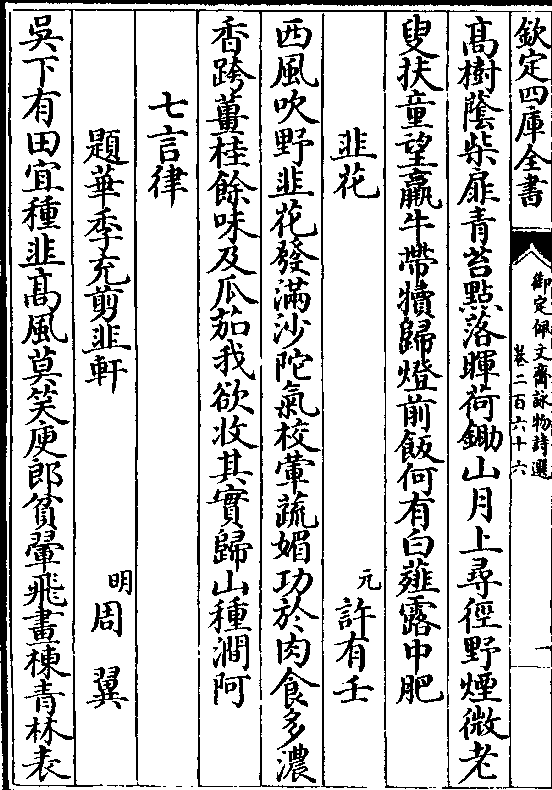 欽定四庫全書
御定佩文齋詠物詩選
卷二百六十六
高樹蔭柴扉青苔點落暉荷鋤山月上尋徑野煙微老
叟扶童望羸牛帶犢歸燈前飯何有白薤露中肥
韭花
元許有壬
西風吹野韭花發滿沙陀氣校葷蔬媚功於肉食多濃
香跨薑桂餘味及瓜茄我欲收其實歸山種澗阿
七言律
題華季充剪韭軒
明周翼
吳下有田宜種韭高風莫笑庾郎貧翬飛畫棟青林表